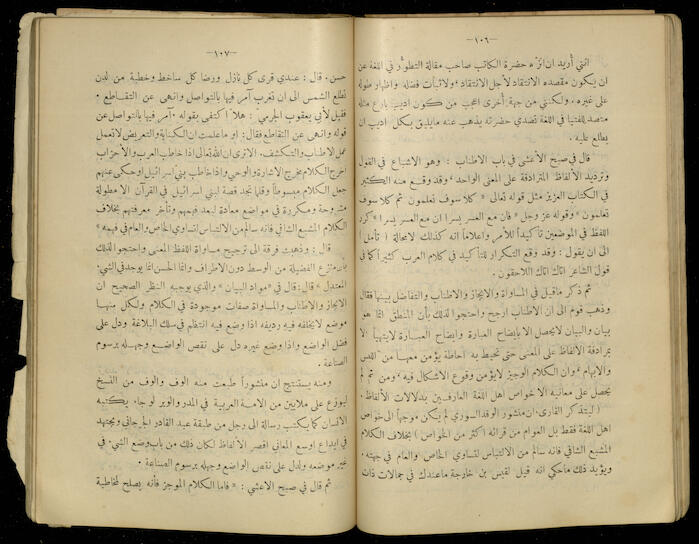 — ١٠٦ —
انني أريد ان انزّه حضرة الكاتب صاحب مقالة التطوّر في اللغة عن
ان يكون مقصده الانتقاد لأجل الانتقاد، ولاثبات فضله واظهار طوله
على غيره. ولكنني من جهة أخرى اعجب من كون اديب بارع مثله
متصد للفتيا في اللغة تصدي حضرته يذهب عنه مايليق بكل اديب ان
يطلع عليه .
قال في صبح الأعشى في باب الاطناب : وهو الاشباع في القول
وترديد الألفاظ المترادفة على المعنى الواحد، وقد وقع منه الكثير
في الكتاب العزيز مثل قوله تعالى « كلا سوف تعلمون ثم كلا سوف
تعلمون » وقوله عز وجل « فان مع العسر يسرا ان مع العسر يسرا » كرر
اللفظ في الموضعين تأكيداً للأمر واعلاماً انه كذلك لامحالة ( تأمل )
الى ان يقول : وقد وقع التكرار للتأكيد في كلام العرب كثيراً كما في
قول الشاعر اتاك اتاك اللاحقون .
ثم ذكر ماقيل في المساواة والايجاز والاطناب والتفاضل بينها فقال
وذهب قوم الى ان الاطناب ارجح واحتجوا لذلك بأن المنطق انما هو
بيان والبيان لايحصل الا بايضاح العبارة وايضاح العبارة لايتهيأ الا
بمرادفة الألفاظ على المعنى حتى تحيط به احاطة يؤمن معها من اللبس
والايهام ، وان الكلام الوجيز لايؤمن وقوع الاشكال فيه ، ومن ثم لم
يحصل على معانيه الا خواص اهل اللغة العارفين بدلالات الألفاظ.
( ليتذكر القارىء ان منشور الوفد السوري لم يكن موجهاً الى خواص
اهل اللغة فقط بل العوام من قرائه اكثر من الخواص ) بخلاف الكلام
المشبع الشافي فانه سالم من الالتباس لتساوي الخاص والعام في جهته .
ويؤيد ذلك ماحكي انه قيل لقيس بن خارجة ماعندك في حمالات ذات
— ١٠٧ —
حسن . قال : عندي قرى كل نازل ورضا كل ساخط وخطبة من لدن
تطلع الشمس الى ان تغرب آمر فيها بالتواصل وانهى عن التقاطع .
فقيل لأبي يعقوب الجرمي : هلا اكتفى بقوله « آمر فيها بالتواصل عن
قوله وانهى عن التقاطع فقال : او ماعلمت ان الكناية والتعريض لاتعمل
عمل الاطناب والتكشف. الا ترى ان الله تعالى اذا خاطب العرب والأعراب
اخرج الكلام مخرج الاشارة والوحي واذا خاطب بني اسرائيل او حكى عنهم
جعل الكلام مبسوطاً وقلما تجد قصة لبني اسرائيل في القرآن الا مطولة
مشروحة ومكررة في مواضع معادة لبعد فهمهم وتأخر معرفتهم بخلاف
الكلام المشبع الشافي فانه سالم من الالتباس لتساوي الخاص والعام في فهمه »
قال : وذهبت فرقة الى ترجيح مساواة اللفظ المعنى واحتجوا لذلك
بأن منزع الفضيلة من الوسط دون الاطراف وانما الحسن انما يوجد في الشيء
المعتدل » قال: قال في « مواد البيان » والذي يوجبه النظر الصحيح ان
الايجاز والاطناب والمساواة صفات موجودة في الكلام ولكل منها
موضع لايخلفه فيه رديفه اذا وضع فيه انتظم في سلك البلاغة ودل على
فضل الواضع واذا وضع غيره دل على نقص الواضع وجهله برسوم
الصناعة .
ومنه يستنتج ان منشوراً طبعت منه الوف والوف من النسخ
ليوزع على ملايين من الامة العربية في المدر والوبر لو جاء يكتبه
الانسان كما يكتب رسالة الى رجل من طبقة عبد القادر الجرجاني ويجتهد
في ايداع اوسع المعاني اقصر الألفاظ لكان ذلك من باب وضع الشيء في
غير موضعه ولدل على نقص الواضع وجهله برسوم الصناعة .
ثم قال في صبح الاعشى : « فاما الكلام الموجز فأنه يصلح لمخاطبة